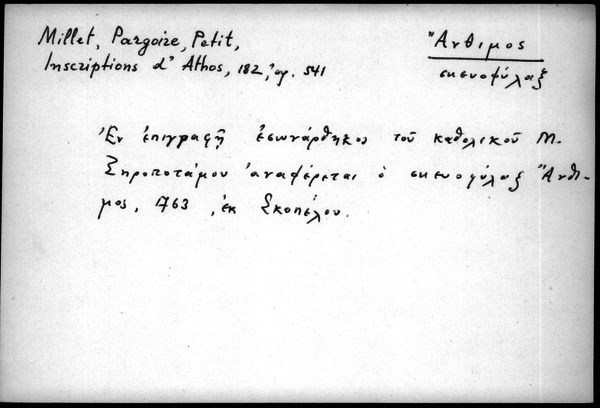 Millet, Pargoire, Petit,
Inscriptions d' Athos, 182, ἀρ. 541
Ἄνθιμος
σκευοφύλαξ
Ἐν ἐπιγραφῇ ἐσωνάρθηκος τοῦ καθολικοῦ Μ.
Ξηροποτάμου ἀναφέρεται ὁ σκευοφύλαξ Ἄνθι-
μος, 1763, ἐκ Σκοπέλου.